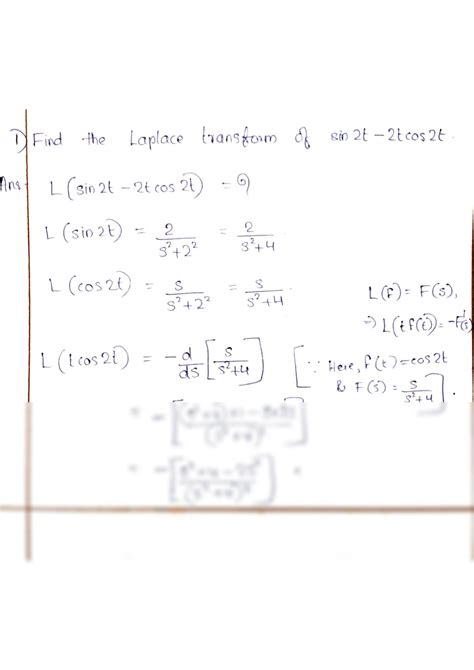 1) Find the Laplace transform of sin 2t - 2t cos 2t.
Ans- L(sin 2t - 2t cos 2t) = ?
L(sin 2t) = 2/(s²+2²) = 2/(s²+4)
L(cos 2t) = s/(s²+2²) = s/(s²+4).
L(f) = F(s),
⇒ L(t f(t)) = -F'(s)
L(t cos 2t) = -d/ds [s/(s²+4)] [∵ Here, f(t) = cos 2t
& F(s) = s/(s²+4)].